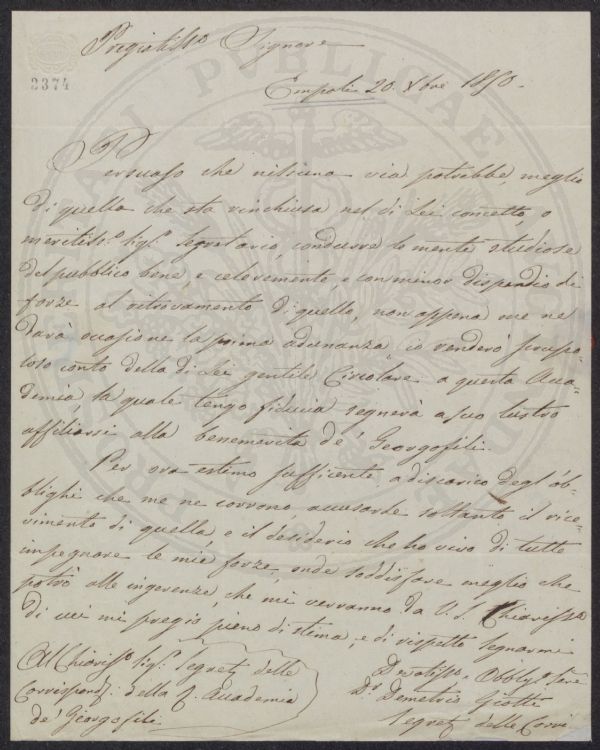 Pregiatiss.º Signore
2374
Empoli 20. Xbre 1850.
Persuaso che nissuna via potrebbe, meglio
di quella che sta rinchiusa nel di Lei concetto, o
meritiss.º Sig.r Segretario, condurre le menti studiose
del pubblico bene e celeremente, e con minor dispendio di
forze al ritrovamento di quello, non appena me ne
darà occasione la prima adunanza io renderò scrupo-
loso conto della di Lei gentile Circolare a questa Acca-
demia, la quale tengo fiducia segnerà a suo lustro
affiliarsi alla benemerita de' Georgofili.
Per ora estimo sufficente a discarico degl'ob-
blighi che me ne corrono accusarle soltanto il rice-
vimento di quella, e il desiderio che ho vivo di tutte
impegnare le mie forze, onde soddisfare meglio che
potrò alle ingerenze, che mi verranno da V. S. Chiariss.ª
di cui mi pregio pieno di stima, e di rispetto segnarmi
Al Chiariss.º Sig.r Segret. delle
Corrispond. della R. Accademia
de' Georgofili.
Devotiss.º Obblg.º Serv.
D.r Demetrio Giotti
Segret. delle Corri
PROSPERITATI PVBLICAE AVGENDAE